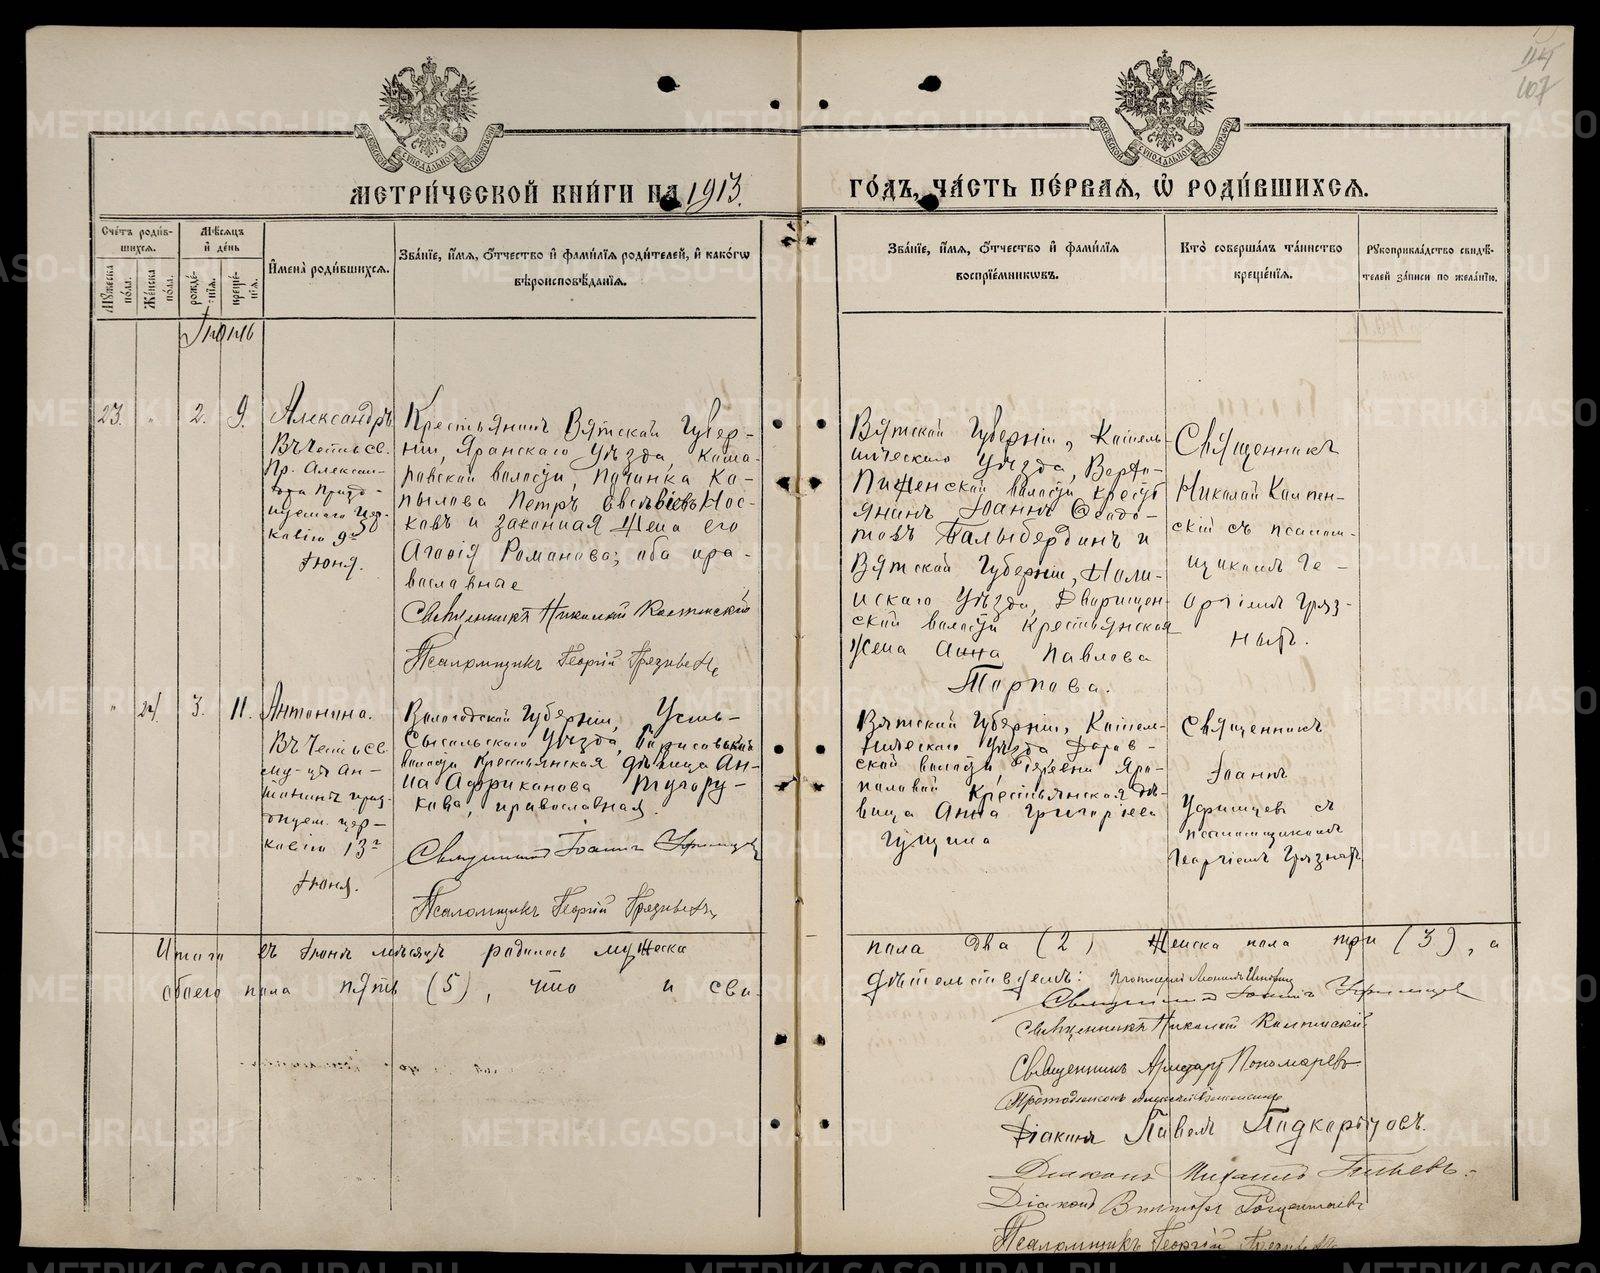 114
107
МЕТРИ́ЧЕСКОЙ КНИ́ГИ НА 1913.
ГО́ДЪ, ЧА́СТЬ ПЕ́РВАЯ, Ѽ РОДИ́ВШИХСЯ.
Сче́тъ роди́в-
шихся.
Му́жеска по́ла.
Же́нска по́ла.
Мѣ́сяцъ
и де́нь
рожде́-
нія.
креще́-
нія.
Имена́ роди́вшихся.
Зва́нїе, и́мя, о́тчество и фами́лїя роди́телей, и како́гѡ
вѣроисповѣ́данїя.
Зва́нїе, и́мя, о́тчество и фами́лїя
воспрїе́мникѡвъ.
Кто̀ соверша́лъ та́инство
креще́нїя.
Рукоприкла́дство свидѣ́-
телей за́писи по жела́нїю.
Іюнь
23. " 2. 9.
Александръ
Въ честь св.
Пр. Алексан-
дра празд-
нуемаго цер-
ковію 9го
Іюня.
Крестьянинъ Вятской Губер-
ніи, Яранскаго Уѣзда, Кома-
ровской волости, Починка Ко-
пылова Петръ Евсѣвіевъ Нос-
ковъ и законная жена его
Агафія Романова; оба пра-
вославные
Священникъ Николай Колпенскій
Псаломщикъ Георгій Грязныхъ
Вятской Губерніи, Котель-
ническаго Уѣзда, Верхо-
Пиженской волости крест
янинъ Іоаннъ Ѳедо-
товъ Балыбердинъ и
Вятской Губерніи, Ноли-
нскаго Уѣзда, Дворищен-
ской волости крестьянская
жена Анна Павлова
Торпова.
Священникъ
Николай Колпен-
скій съ псалом-
щикомъ Ге-
оргіемъ Гряз-
ныхъ.
" 24. 3. 11.
Антонина.
Въ честь св
му-цы Ан-
тонины праз-
днуем. цер-
ковію 13го
Іюня.
Вологодской Губерніи, Усть-
Сысольскаго Уѣзда, Борисовской
волости крестьянская дѣвица Ан-
на Африканова
православная.
Священникъ Іоаннъ Уфимцевъ
Псаломщикъ Георгій Грязныхъ
Вятской Губерніи, Котель-
ническаго Уѣзда
ской волости, деревни Яро-
половой Крестьянская дѣ-
вица Анна Григоріева
Гущина
Священникъ
Іоаннъ
Уфимцевъ съ
псаломщикомъ
Георгіемъ Грязныхъ
Итого въ Іюнѣ мѣсяцѣ родилось мужеска
пола два (2) женска пола три (3), а
обоего пола пять (5), что и сви-
дѣтельствуемъ:
Священникъ Іоаннъ Уфимцевъ
Священникъ Николай Колпенскій
Священникъ Пономаревъ
Протодіаконъ
Діаконъ Павелъ Подкорытовъ.
Діаконъ Михаилъ
Діаконъ Викторъ
Псаломщикъ Георгій Грязныхъ
METRIKI.GASO-URAL.RU